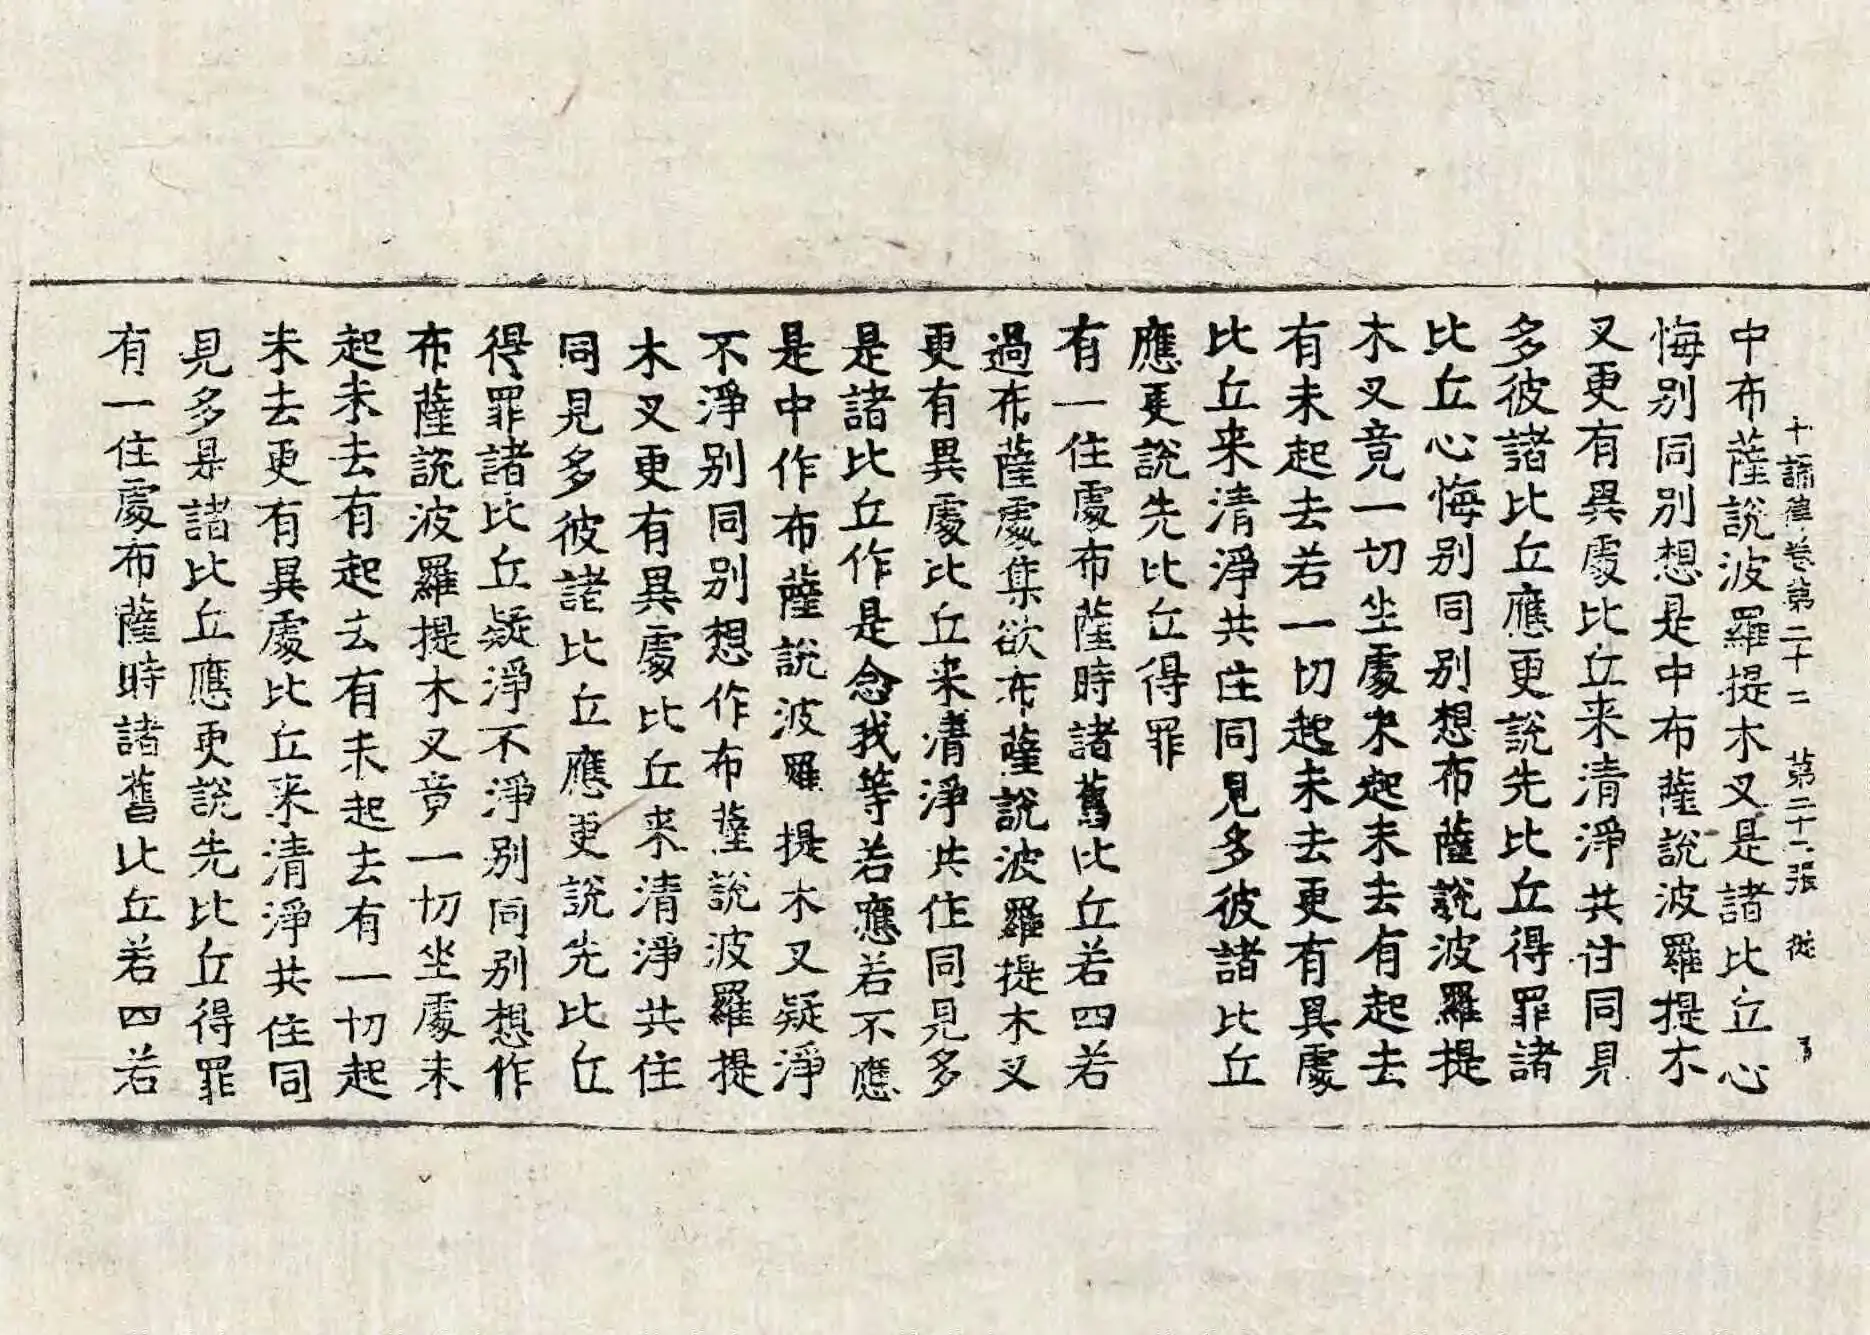 十誦律卷第二十二 第二十二張 從
中布薩說波羅提木叉是諸比丘心
悔别同别想是中布薩說波羅提木
叉更有異處比丘来清淨共住同見
多彼諸比丘應更說先比丘得罪諸
比丘心悔别同别想布薩說波羅提
木叉竟一切坐處未起未去有起去
有未起去若一切起未去更有異處
比丘来清淨共住同見多彼諸比丘
應更說先比丘得罪
有一住處布薩時諸舊比丘若四若
過布薩處集欲布薩說波羅提木叉
更有異處比丘来清淨共住同見多
是諸比丘作是念我等若應若不應
是中作布薩說波羅提木叉疑淨
不淨别同别想作布薩說波羅提
木叉更有異處比丘来清淨共住
同見多彼諸比丘應更說先比丘
得罪諸比丘疑淨不淨别同别想作
布薩說波羅提木叉竟一切坐處未
起未去有起去有未起去有一切起
未去更有異處比丘来清淨共住同
見多是諸比丘應更說先比丘得罪
有一住處布薩時諸舊比丘若四若